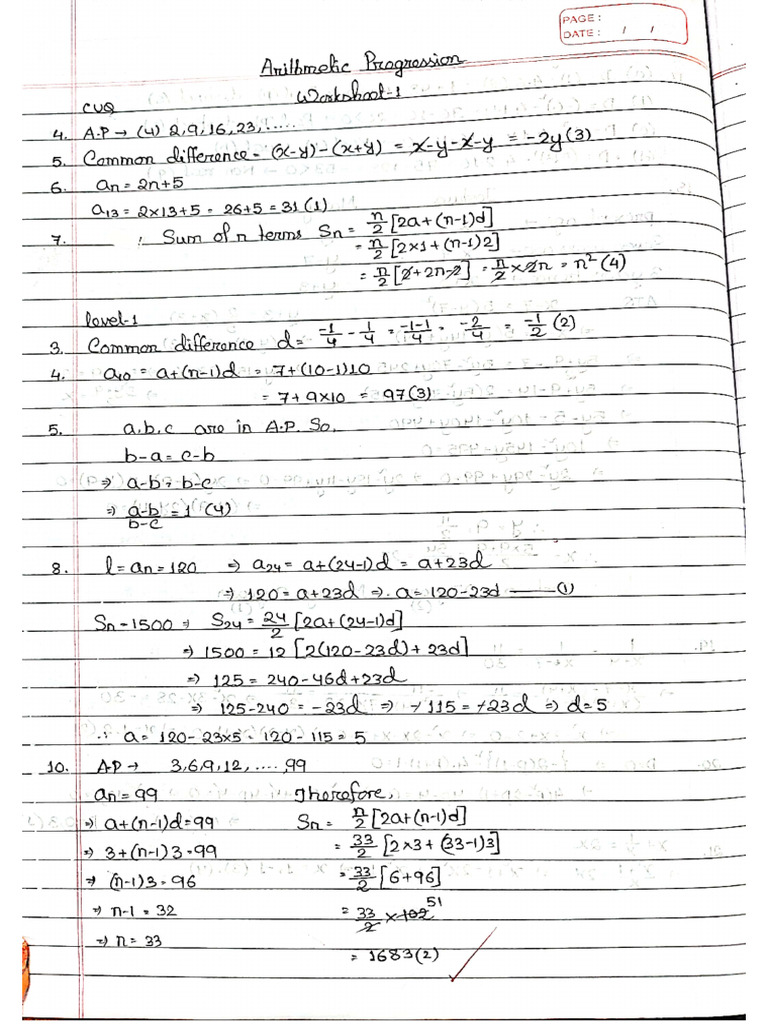 PAGE :
DATE : / /
Arithmetic Progression
Worksheet-1
CUQ
4. A.P → (4) 2,9,16,23,.....
5. Common difference = (x-y)-(x+y) = x-y-x-y = -2y (3)
6. an = 2n+5
a13 = 2×13+5 = 26+5 = 31 (1)
7. : Sum of n terms Sn = n/2 [2a+(n-1)d]
= n/2 [2×1+(n-1)2]
= n/2 [2+2n-2] = n/2 × 2n = n² (4)
level-1
3. Common difference d = -1/4 - 1/4 = -1-1/4 = -2/4 = -1/2 (2)
4. a10 = a+(n-1)d = 7+(10-1)10
= 7+9×10 = 97 (3)
5. a,b,c are in A.P. So,
b-a = c-b
⇒ a-b = b-c
⇒ a-b/b-c = 1 (4)
8. l = an = 120 ⇒ a24 = a+(24-1)d = a+23d
⇒ 120 = a+23d ⇒ a = 120-23d —— (1)
Sn = 1500 ⇒ S24 = 24/2 [2a+(24-1)d]
⇒ 1500 = 12 [2(120-23d)+23d]
⇒ 125 = 240-46d+23d
⇒ 125-240 = -23d ⇒ -115 = -23d ⇒ d = 5
∴ a = 120-23×5 = 120-115 = 5
10. AP → 3,6,9,12,.....,99
an = 99 Therefore,
⇒ a+(n-1)d = 99 Sn = n/2 [2a+(n-1)d]
⇒ 3+(n-1)3 = 99 = 33/2 [2×3+(33-1)3]
⇒ (n-1)3 = 96 = 33/2 [6+96]
⇒ n-1 = 32 = 33/2 × 102 51
⇒ n = 33 = 1683 (2)